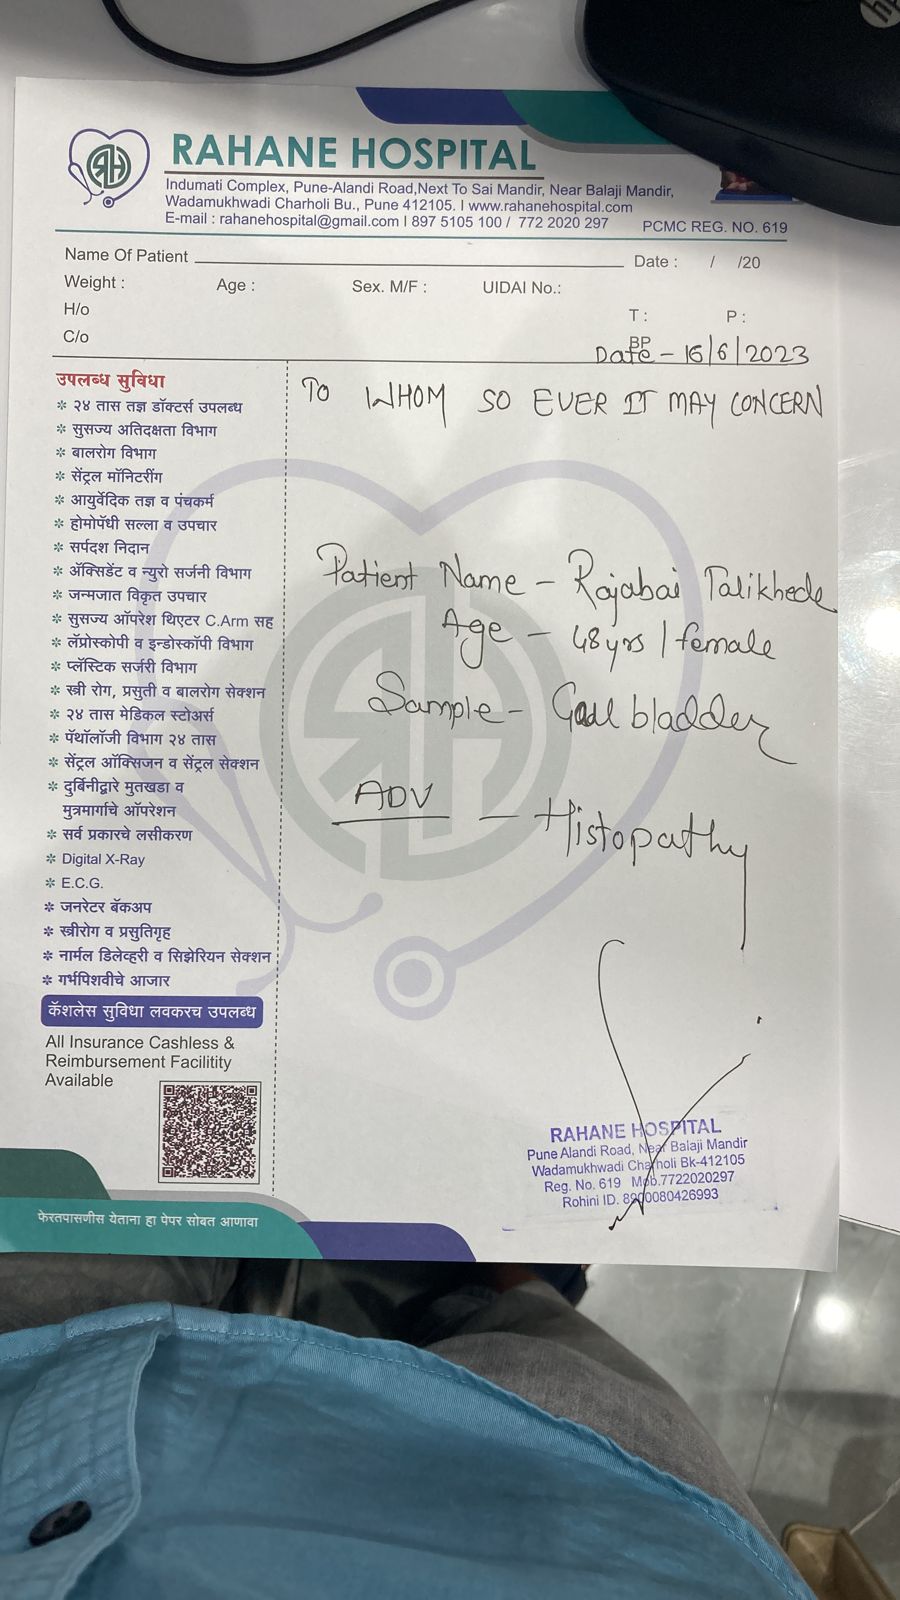 RAHANE HOSPITAL
Indumati Complex, Pune-Alandi Road,Next To Sai Mandir, Near Balaji Mandir,
Wadamukhwadi Charholi Bu., Pune 412105. I www.rahanehospital.com
E-mail : rahanehospital@gmail.com I 897 5105 100 / 772 2020 297
PCMC REG. NO. 619
Name Of Patient
Date : / /20
Weight : Age : Sex. M/F : UIDAI No.:
H/o T : P :
C/o BP
Date - 16/6/2023
उपलब्ध सुविधा
* २४ तास तज्ञ डॉक्टर्स उपलब्ध
* सुसज्य अतिदक्षता विभाग
* बालरोग विभाग
* सेंट्रल मॉनिटरींग
* आयुर्वेदिक तज्ञ व पंचकर्म
* होमोपॅथी सल्ला व उपचार
* सर्पदश निदान
* ॲक्सिडेंट व न्युरो सर्जनी विभाग
* जन्मजात विकृत उपचार
* सुसज्य ऑपरेश थिएटर C.Arm सह
* लॅप्रोस्कोपी व इन्डोस्कॉपी विभाग
* प्लॅस्टिक सर्जरी विभाग
* स्त्री रोग, प्रसुती व बालरोग सेक्शन
* २४ तास मेडिकल स्टोअर्स
* पॅथॉलॉजी विभाग २४ तास
* सेंट्रल ऑक्सिजन व सेंट्रल सेक्शन
* दुर्बिनीद्वारे मुतखडा व
मुत्रमार्गाचे ऑपरेशन
* सर्व प्रकारचे लसीकरण
* Digital X-Ray
* E.C.G.
* जनरेटर बॅकअप
* स्त्रीरोग व प्रसुतिगृह
* नार्मल डिलेव्हरी व सिझेरियन सेक्शन
* गर्भपिशवीचे आजार
कॅशलेस सुविधा लवकरच उपलब्ध
All Insurance Cashless &
Reimbursement Facilitity
Available
फेरतपासणीस येताना हा पेपर सोबत आणावा
TO WHOM SO EVER IT MAY CONCERN
Patient Name - Rajabai Talikhede
Age - 48 yrs / female
Sample - Gall bladder
ADV - Histopathy
RAHANE HOSPITAL
Pune Alandi Road, Near Balaji Mandir
Wadamukhwadi Charholi Bk-412105
Reg. No. 619 Mob.7722020297
Rohini ID. 8900080426993